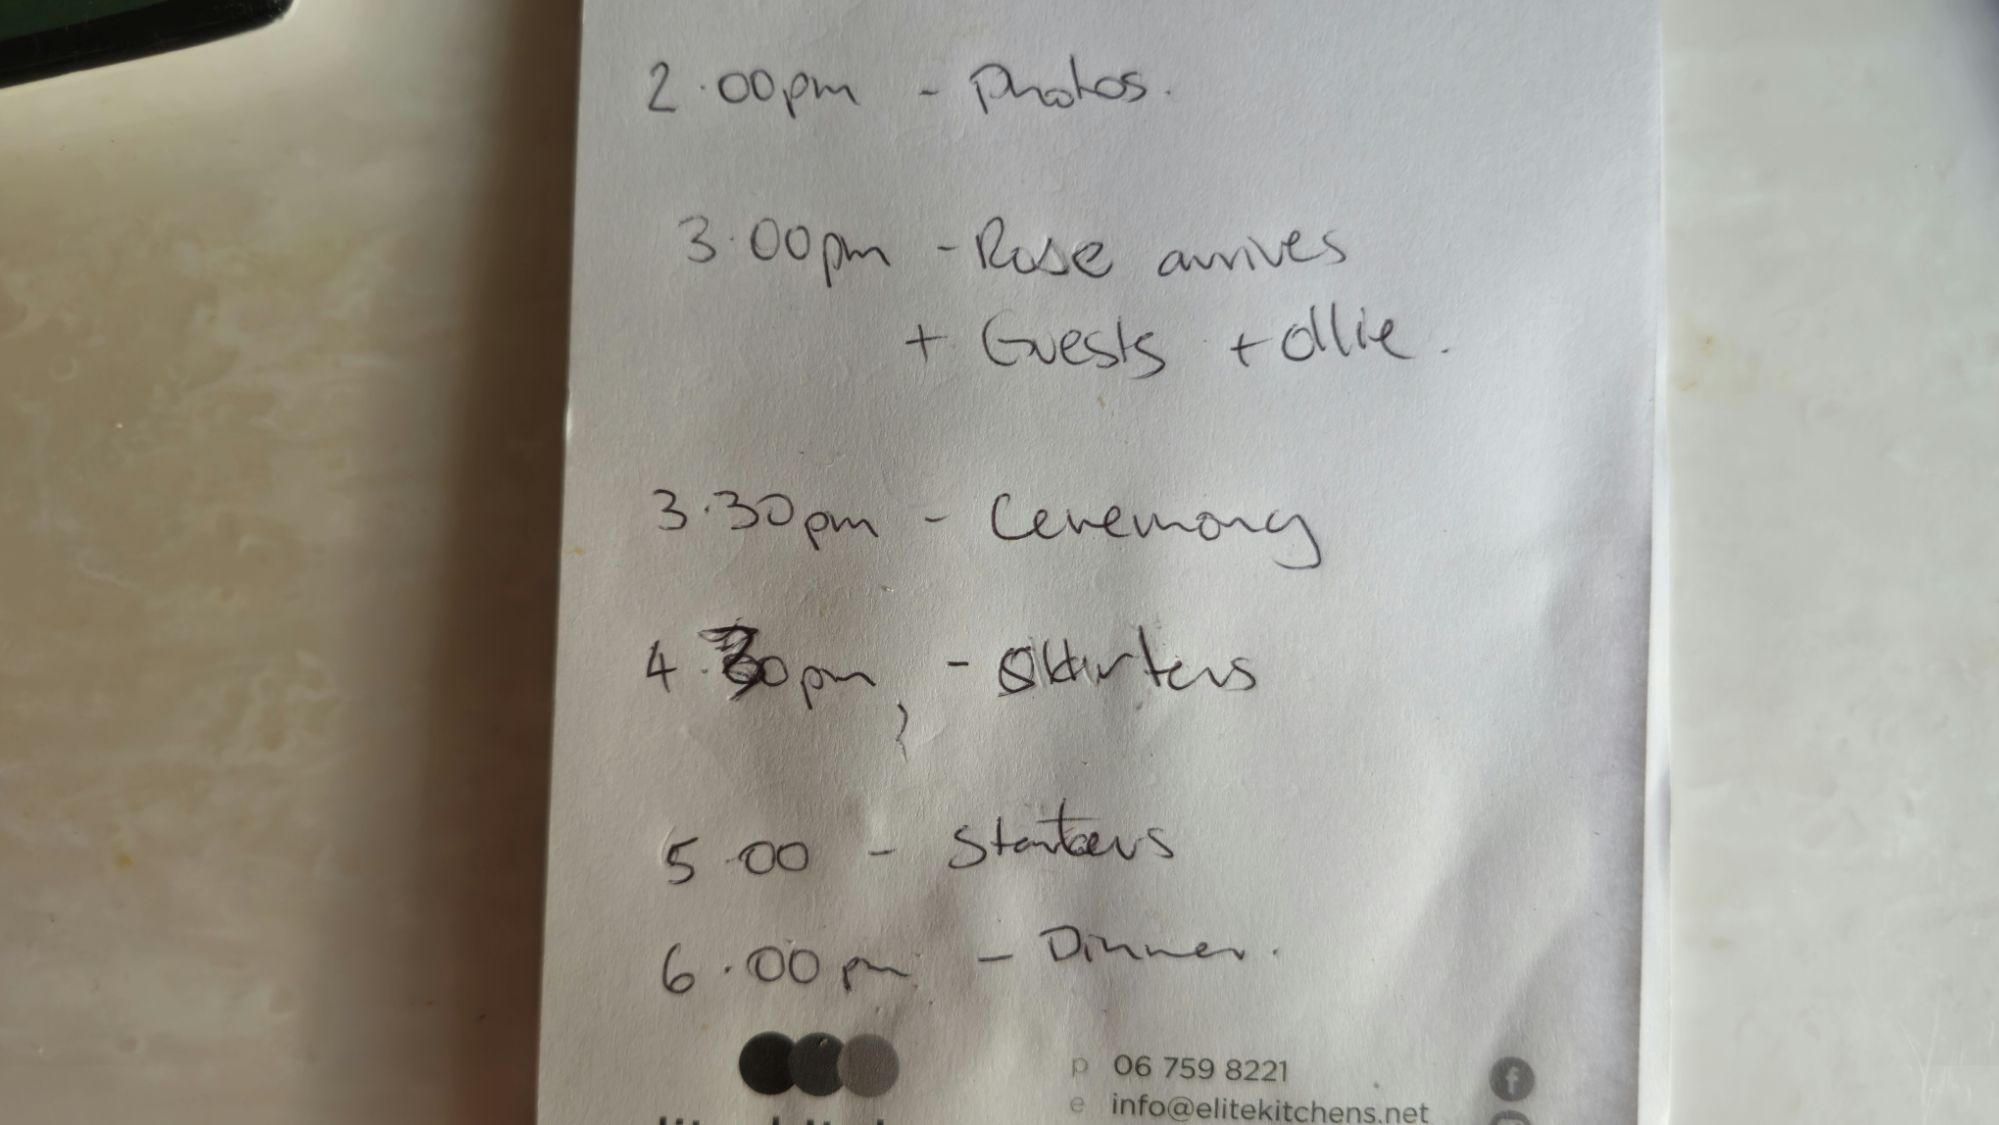 2.00pm - Photos.
3.00pm - Rose arrives
+ Guests + Ollie.
3.30pm - Ceremony
4.30pm - Starters
5.00 - Starters
6.00pm - Dinner.
p 06 759 8221
e info@elitekitchens.net
f